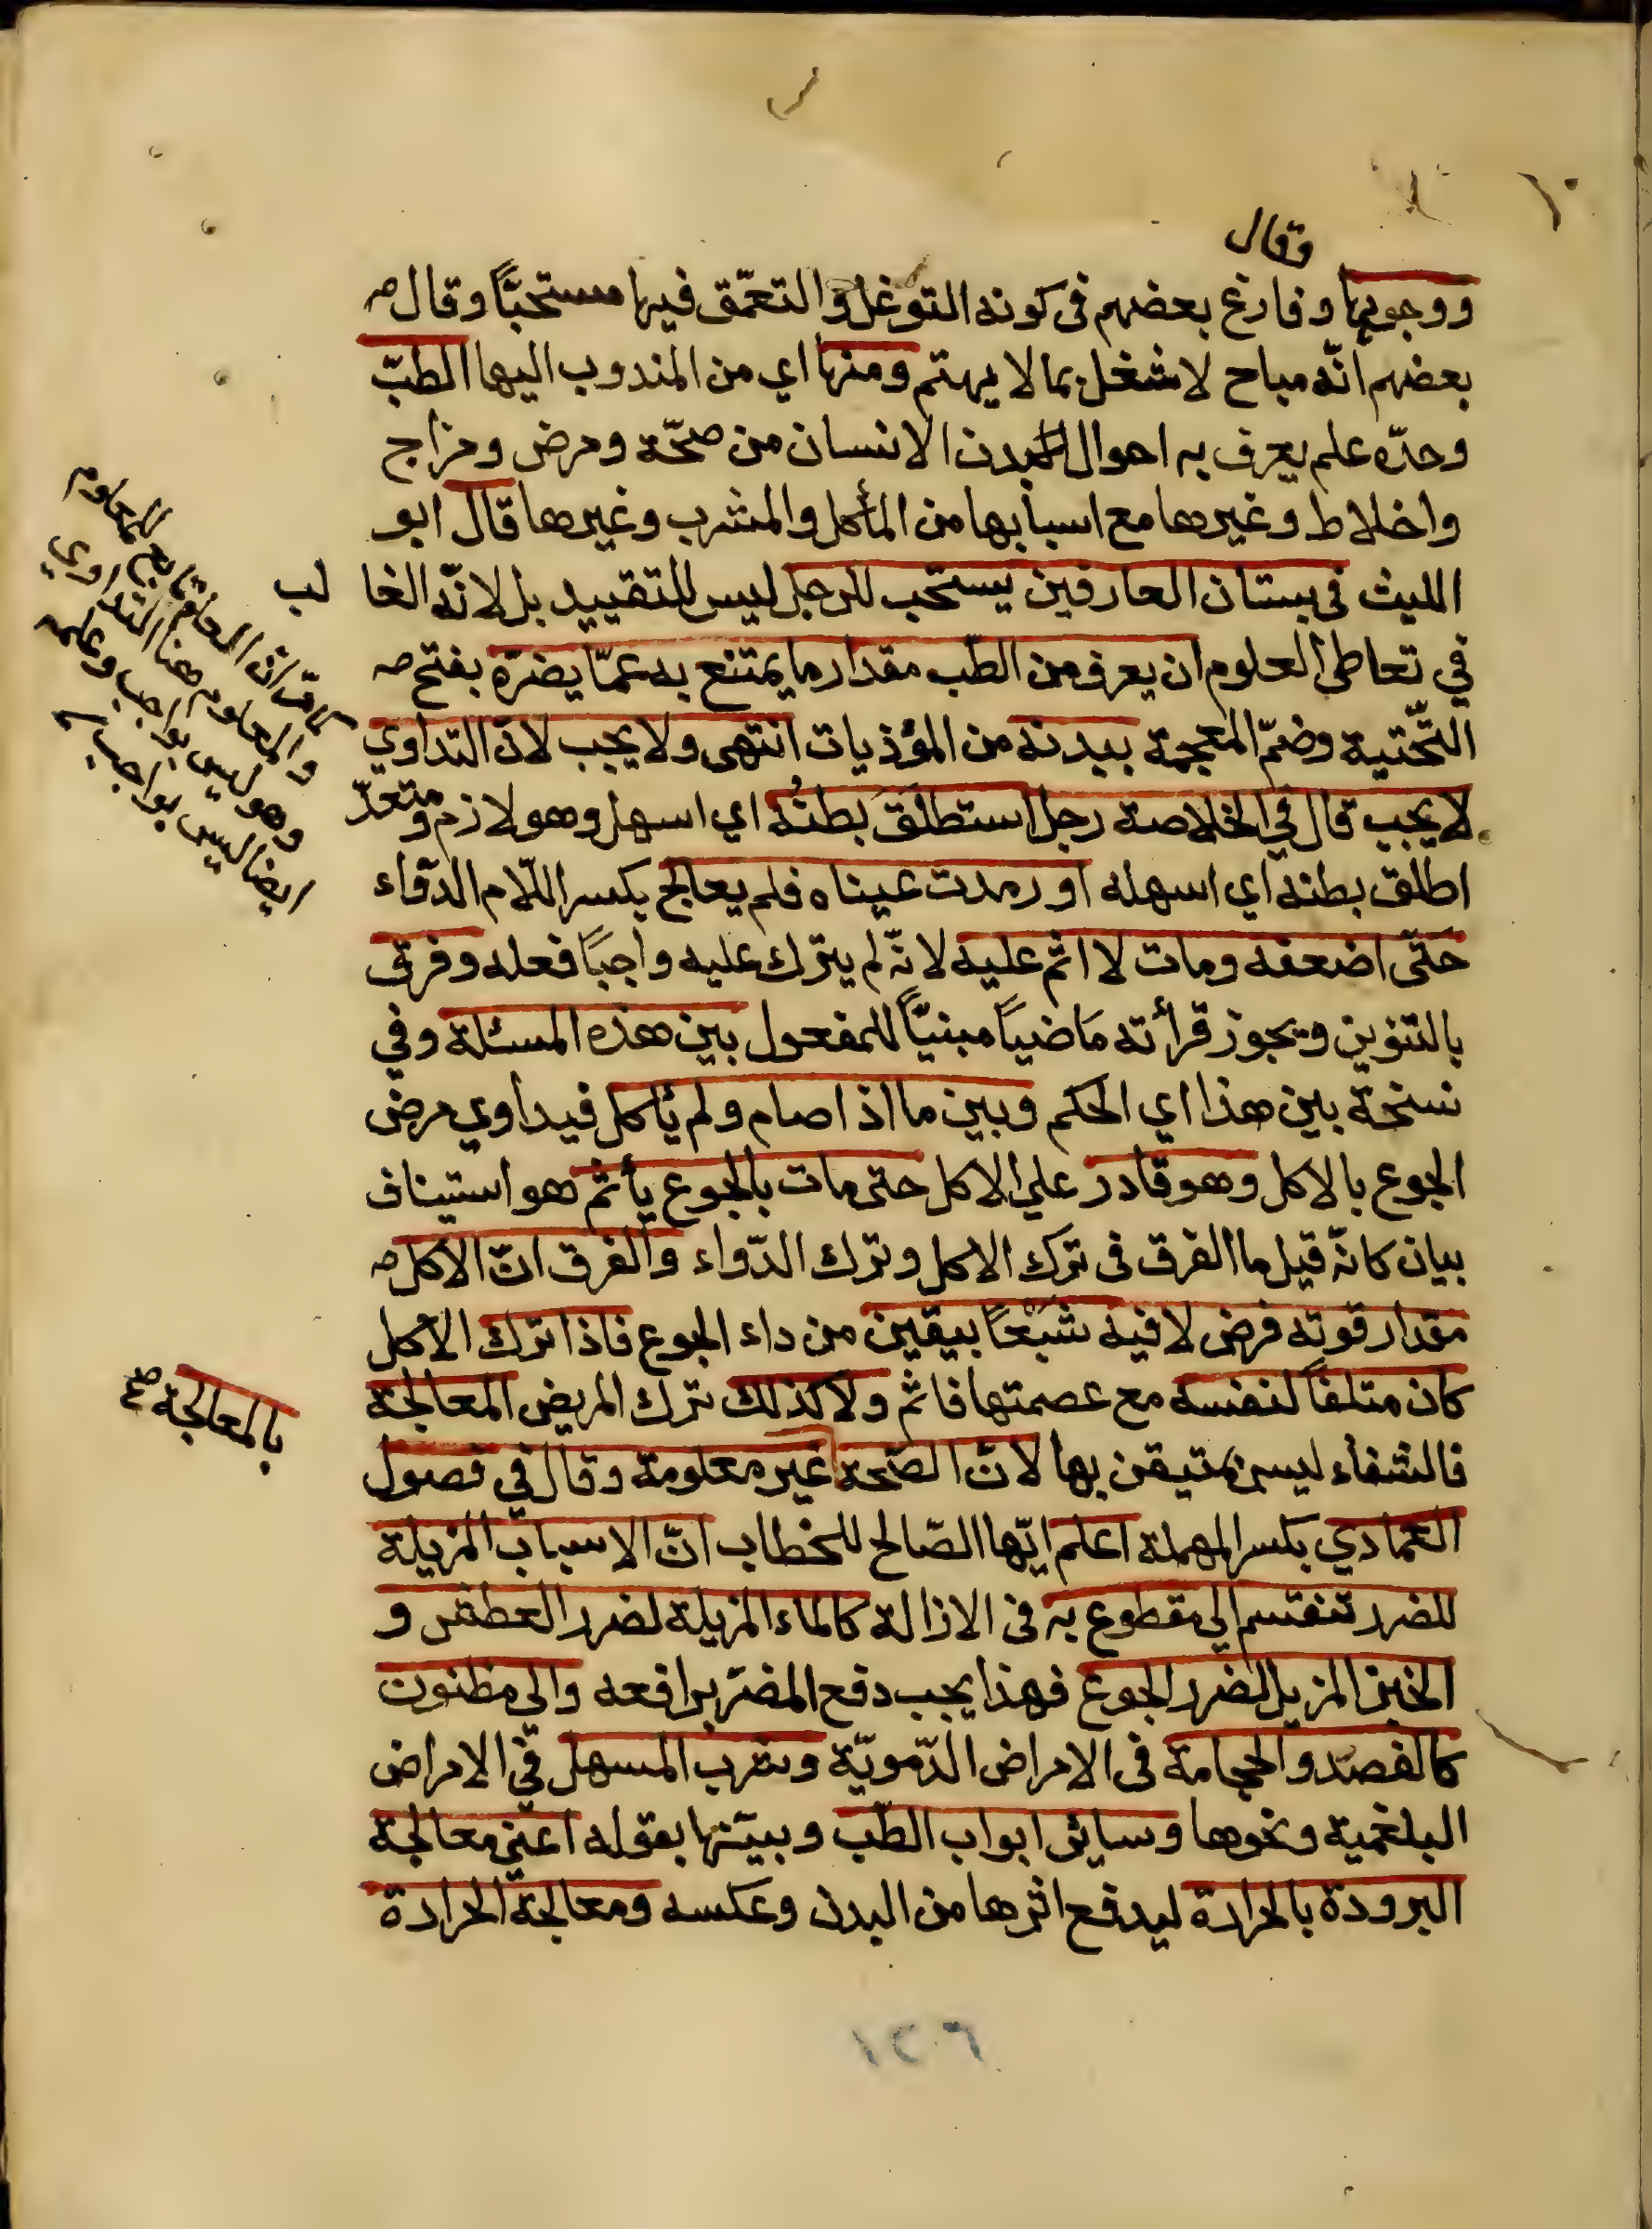 وقال
ووجوبها وفارغ بعضهم فى كونه التوغل والتعمّق فيها مستحبًّا وقال
بعضهم انّه مباح لا شغل بما لا يهتم ومنها اي من المندوب اليها الطبّ
وحدّه علم يعرف به احوال البدن الانسان من صحّة ومرض ومزاج
واخلاط وغيرها مع اسبابها من المأكل والمشرب وغيرها قال ابو
الليث فى بستان العارفين يستحب للرجل ليس للتقييد بل لانّه الغا لب
في تعاطى العلوم ان يعرف من الطّب مقدار ما يمتنع به عمّا يضرّه بفتح
التّحتية وضمّ المعجمة ببدنه من المؤذيات انتهى ولا يجب لانّ التداوي
لا يجب قال في الخلاصة رجل استطلق بطنُه اي اسهل وهو لازم ومتعدّ
اطلق بطنه اي اسهله او رمدت عيناه فلم يعالج بكسر اللّام الدّواء
حتّى اضعفه ومات لا اثم عليه لانّه لم يترك عليه واجبًا فعله وفرق
بالتنوين ويجوز قرأته مَاضياً مبنيًّا للمفعول بين هذه المسئلة وفي
نسخة بين هذا اي الحكم وبين ما اذا صام ولم يأكل فيداوي مرض
الجوع بالاكل وهو قادر على الاكل حتى مات بالجوع يأثم هو استيناف
بيان كانّه قيل ما الفرق فى ترك الاكل وترك الدّواء والفرق انّ الاكل
مقدار قوته فرض لا فيه شبَعًا بيقين من داء الجوع فاذا ترك الاكل
كان متلفاً لنفسه مع عصمتها فاثم ولا كذلك ترك المريض المعالجة
فالشفاء ليس بمتيقن بها لانّ الصّحة غير معلومة وقال في فصول
بالمعالجة صح
العمادي بكسر المهملة اعلم ايّها الصّالح للخطاب انّ الاسباب المزيلة
للضرر تنقسم الى مقطوع به فى الازالة كالماء المزيلة لضرر العطش و
الخبز المزيل لضرر الجوع فهذا يجب دفع المضرّ برافعه والى مظنون
كالفصد والحجامة فى الامراض الدّمويّة وشرب المسهل في الامراض
البلغمية ونحوها وسائر ابواب الطّب وبيّنها بقوله اعني معالجة
البرودة بالحرارة ليدفع اثرها من البدن وعكسه ومعالجة الحرارة
انّ العلم تابع للمعلوم
والمعلوم هنا التداوي
وهو ليس بواجب وعلمه
ايضا ليس بواجب
١٢٠٦